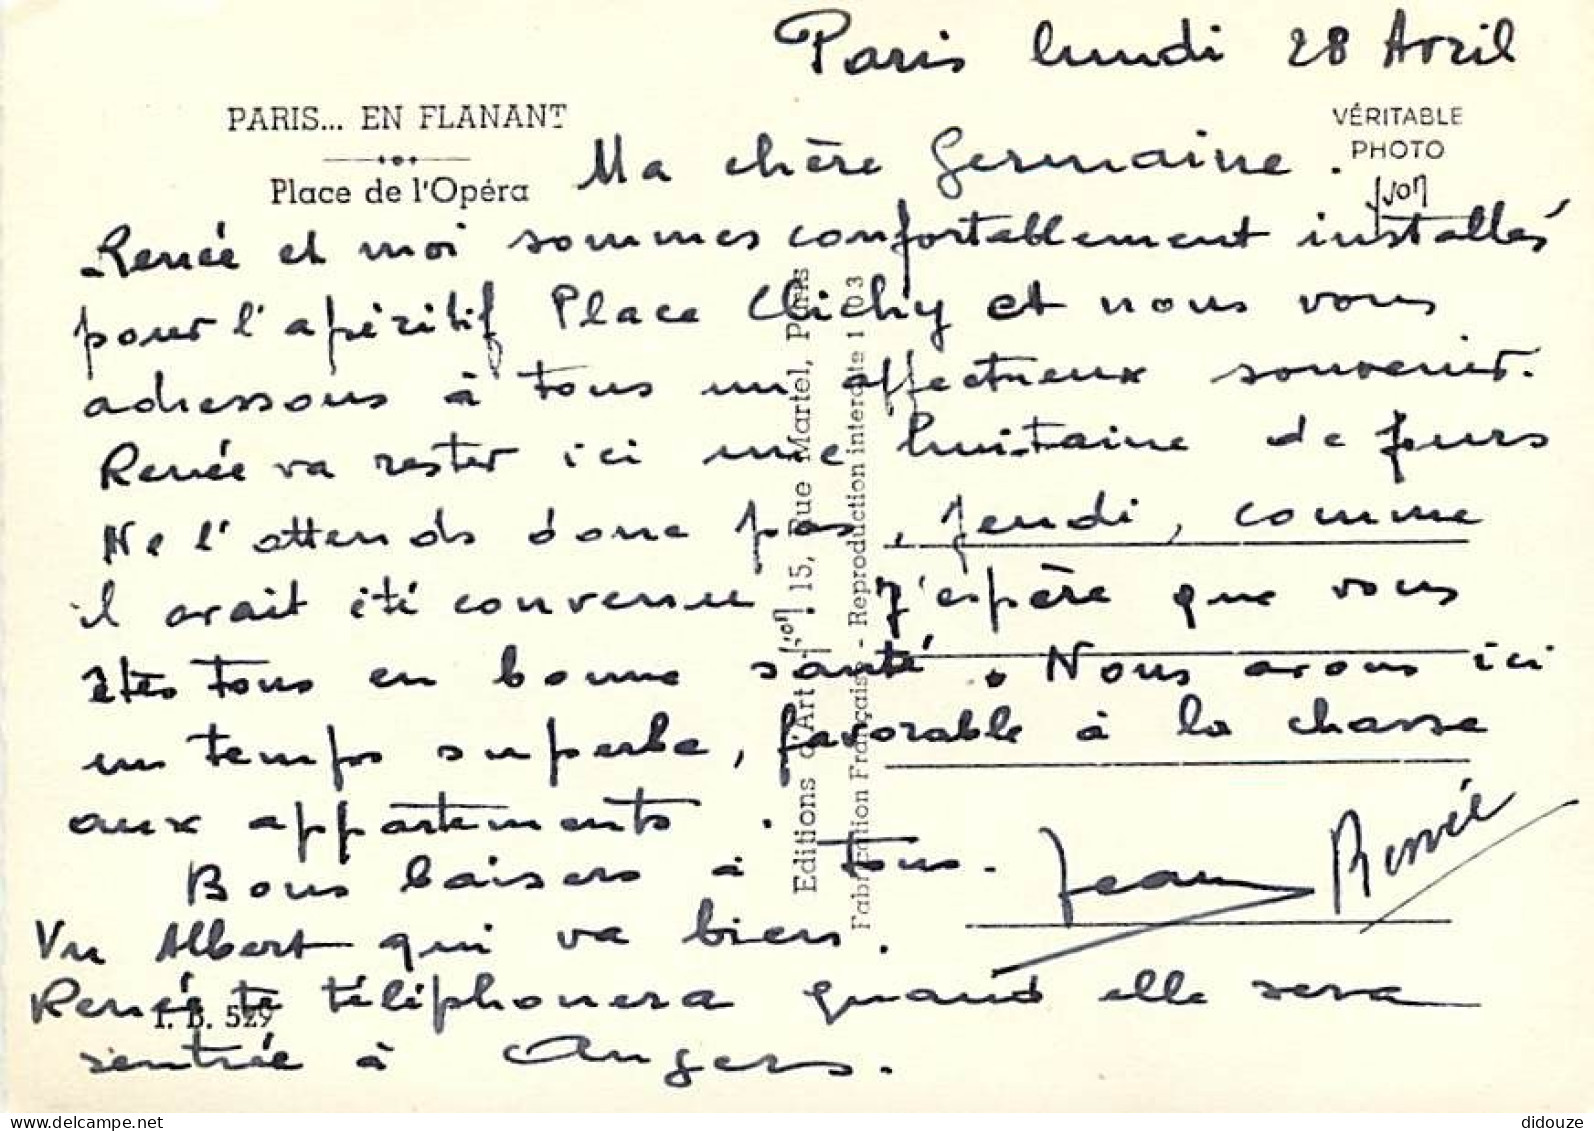 Paris lundi 28 Avril
PARIS... EN FLANANT
Place de l'Opéra
VÉRITABLE
PHOTO
yvon
Ma chère Germaine.
Renée et moi sommes confortablement installés
pour l'apéritif Place Clichy et nous vous
adressons à tous un affectueux souvenir.
Renée va rester ici une huitaine de jours
Ne l'attends donc pas, jeudi, comme
il avait été convenu. J'espère que vous
êtes tous en bonne santé. Nous avons ici
un temps superbe, favorable à la chasse
aux appartements.
Bons baisers à tous.
Jean Renée
Vu Albert qui va bien.
Renée te téléphonera quand elle sera
rentrée à Angers.
I. B. 529
Editions d'Art yvon. 15, Rue Martel, Paris
Fabrication Française - Reproduction interdite 1 03
didouze